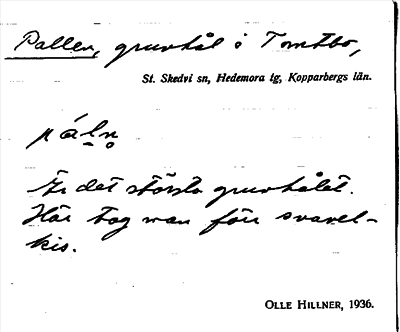 Pallen, gruvhål i Tomtbo,
St. Skedvi sn, Hedemora tg, Kopparbergs län.
páln̥
Är det största gruvhålet.
Här tog man förr svavel-
kis.
OLLE HILLNER, 1936.